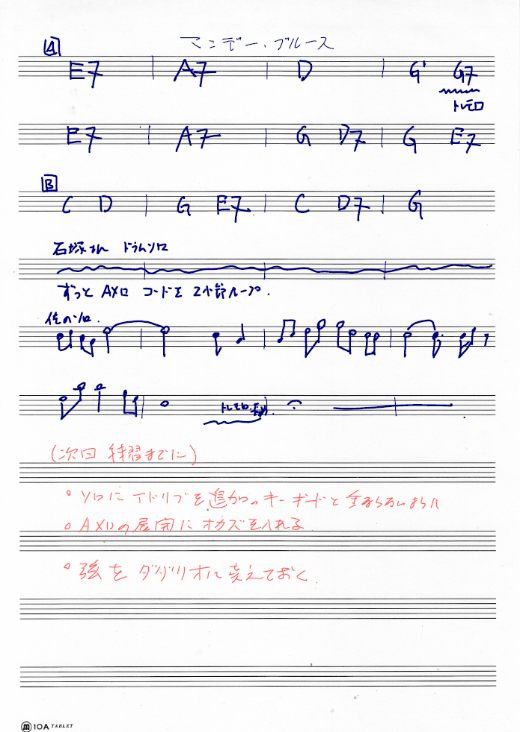 マンデー・ブルース
A
E7 | A7 | D | G G7
トレモロ
E7 | A7 | G D7 | G E7
B
C D | G E7 | C D7 | G
石塚さん ドラムソロ
ずっと Aメロ コードを 2小節ループ.
トレモロ
(次回 練習までに)
○ ソロに アドリブを追加。キーボードと
○ Aメロの展開に オカズを入れる
○ 弦を ダダリオに 変えておく
10A TABLET